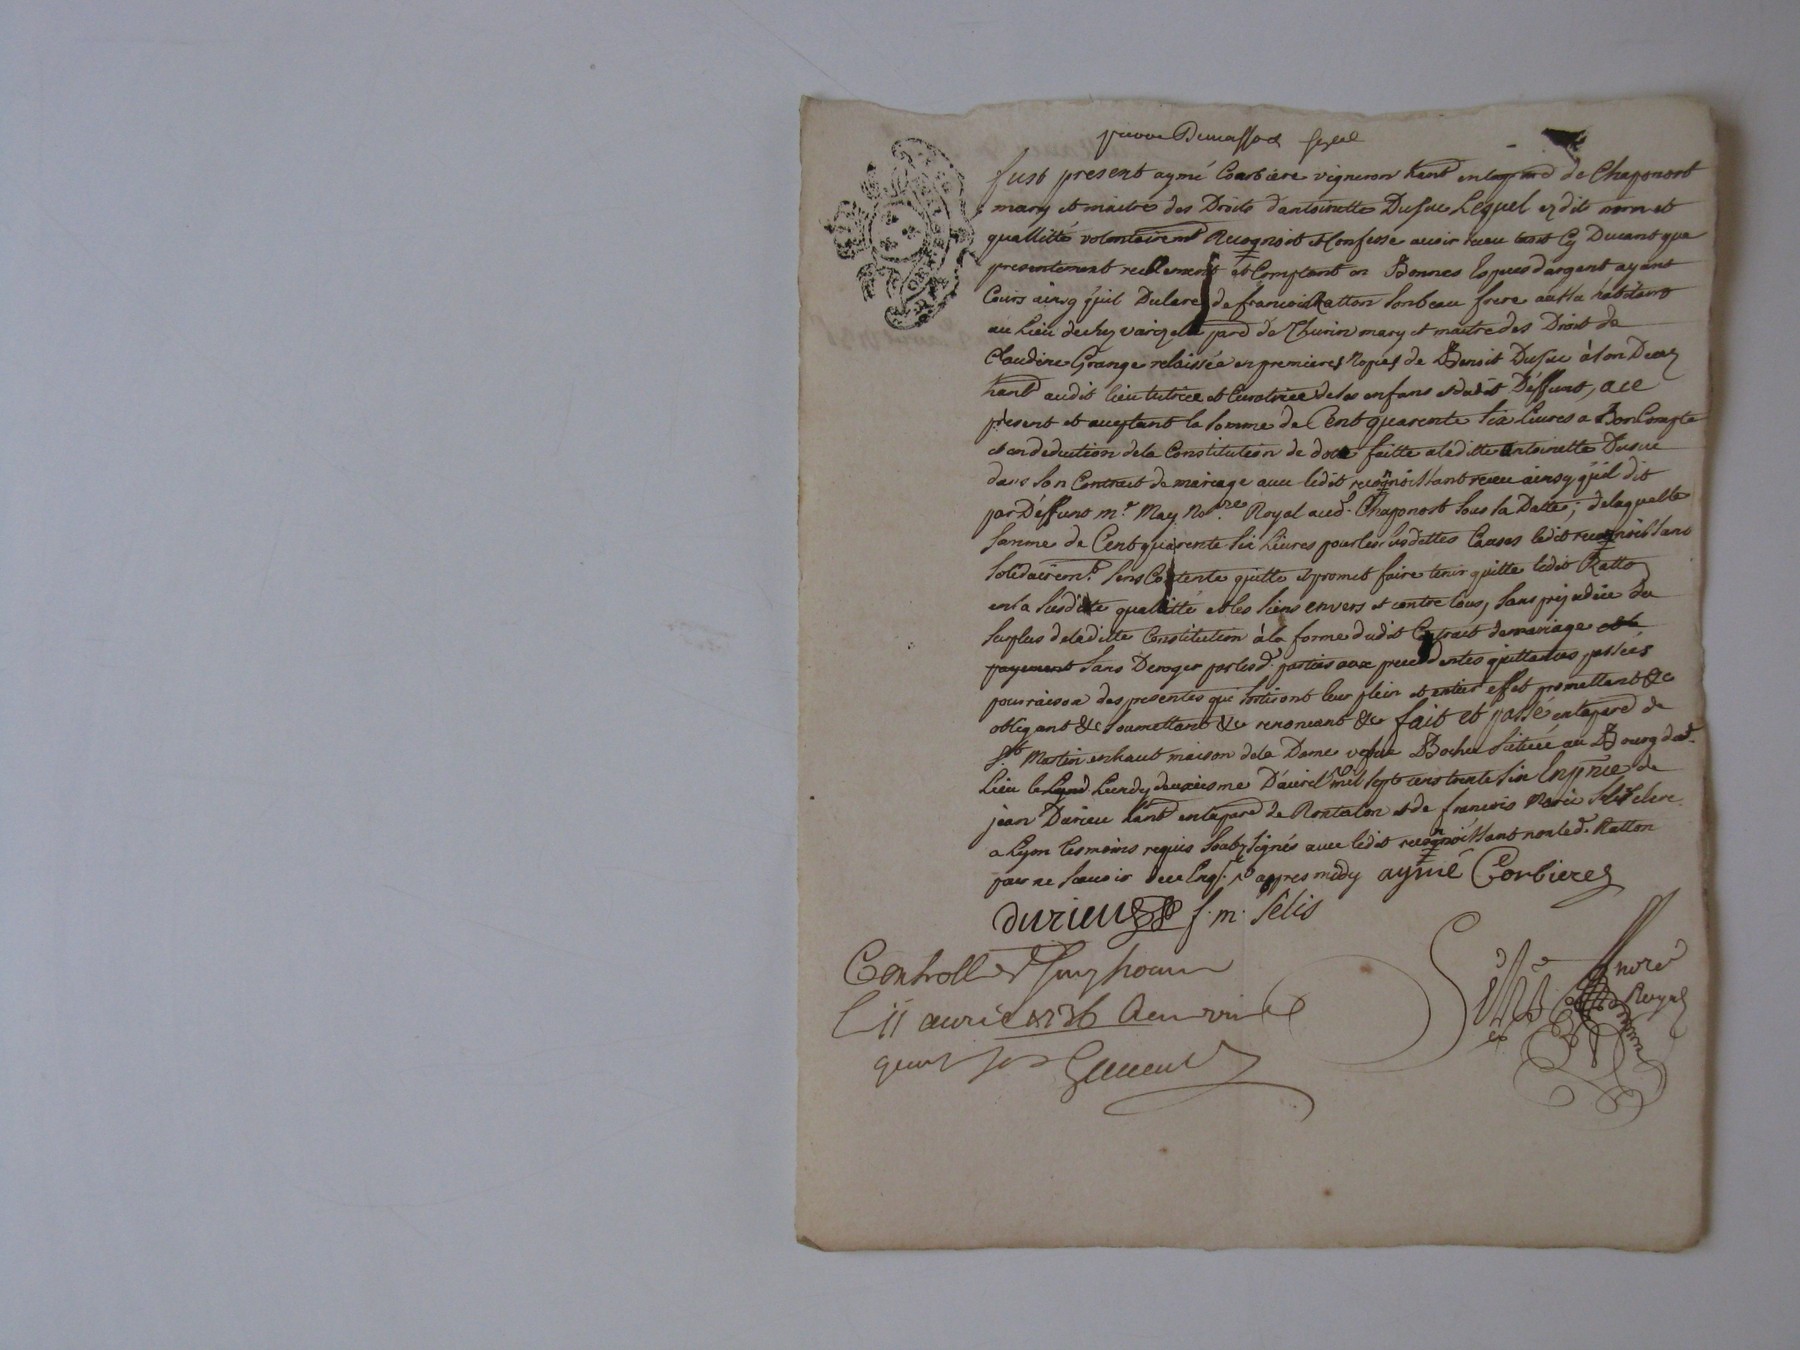 fust present aymé Corbiere vigneron hant en la pard de Chaponost
mary et maitre des Droits d'antoinette Dusuc Lequel ez dit nom et
quallitté volontairemt Recognoit et Confesse avoir reçu tant Cy Devant que
presentement reellement et Comptant en Bonnes Especes d'argent ayant
Cours ainsy qu'il Declare de françois Ratton son beau frere aussi habitant
au Lieu de chez vairzelle pard de Thurin mary et maitre des Droit de
Claudine Grange relaissée en premieres Nopces de Benoit Dusuc à son Deces
hant audit lieu tutrice et Curatrice de ses enfans et dudit Déffunt, a ce
present et aceptant la somme de Cent quarente six Livres a Bon Compte
et en deduction de la Constitution de dote faitte a leditte antoinette Dusuc
dans son Contrait de mariage avec ledit recognoissant receu ainsy qu'il dit
par Déffunt mr. May Nore. Royal aud. Chaponost sous sa Datte; de laquelle
somme de Cent quarente six Livres pour les susdittes Causes ledit recognoissant
solidairemt. sens Contente quitte et promet faire tenir quitte ledit Ratton
en la susditte quallitté et les siens envers et contre tous, sans prejudice du
surplus de laditte Constitution à la forme dudit Contrait de mariage et le
payement sans Deroger par lesd. parties aux precedentes quittances passées
pour raison des presentes qui sortiront leur plein et entier effet promettant &c
obligeant &c soumettant &c renoncant &c fait et passé en la pard de
St. Martin enhaut maison de la Dame vefve Bocher scituée au Bourg dud.
Lieu le Lund Lundy deuxiesme D'avril mil sept cens trente six En pnce de
jean Durieu hant en la pard de Rontalon et de françois Marie Selis clerc
a Lyon tesmoins requis soubzsignés avec ledit recognoissant non led. Ratton
pour ne sçavoir de ce Enq. appres midy aymé Corbiere
durieu f. m. Selis
Controllé a St Symphorien
Le 11 avril 1736 Receu
André
Royal